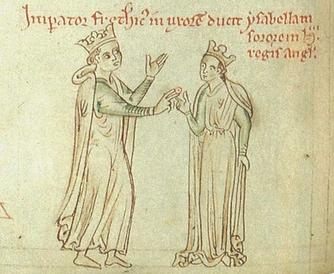 Imperator frethic' in uxorē duxit ysabellam
sororem h̄
regis angl'